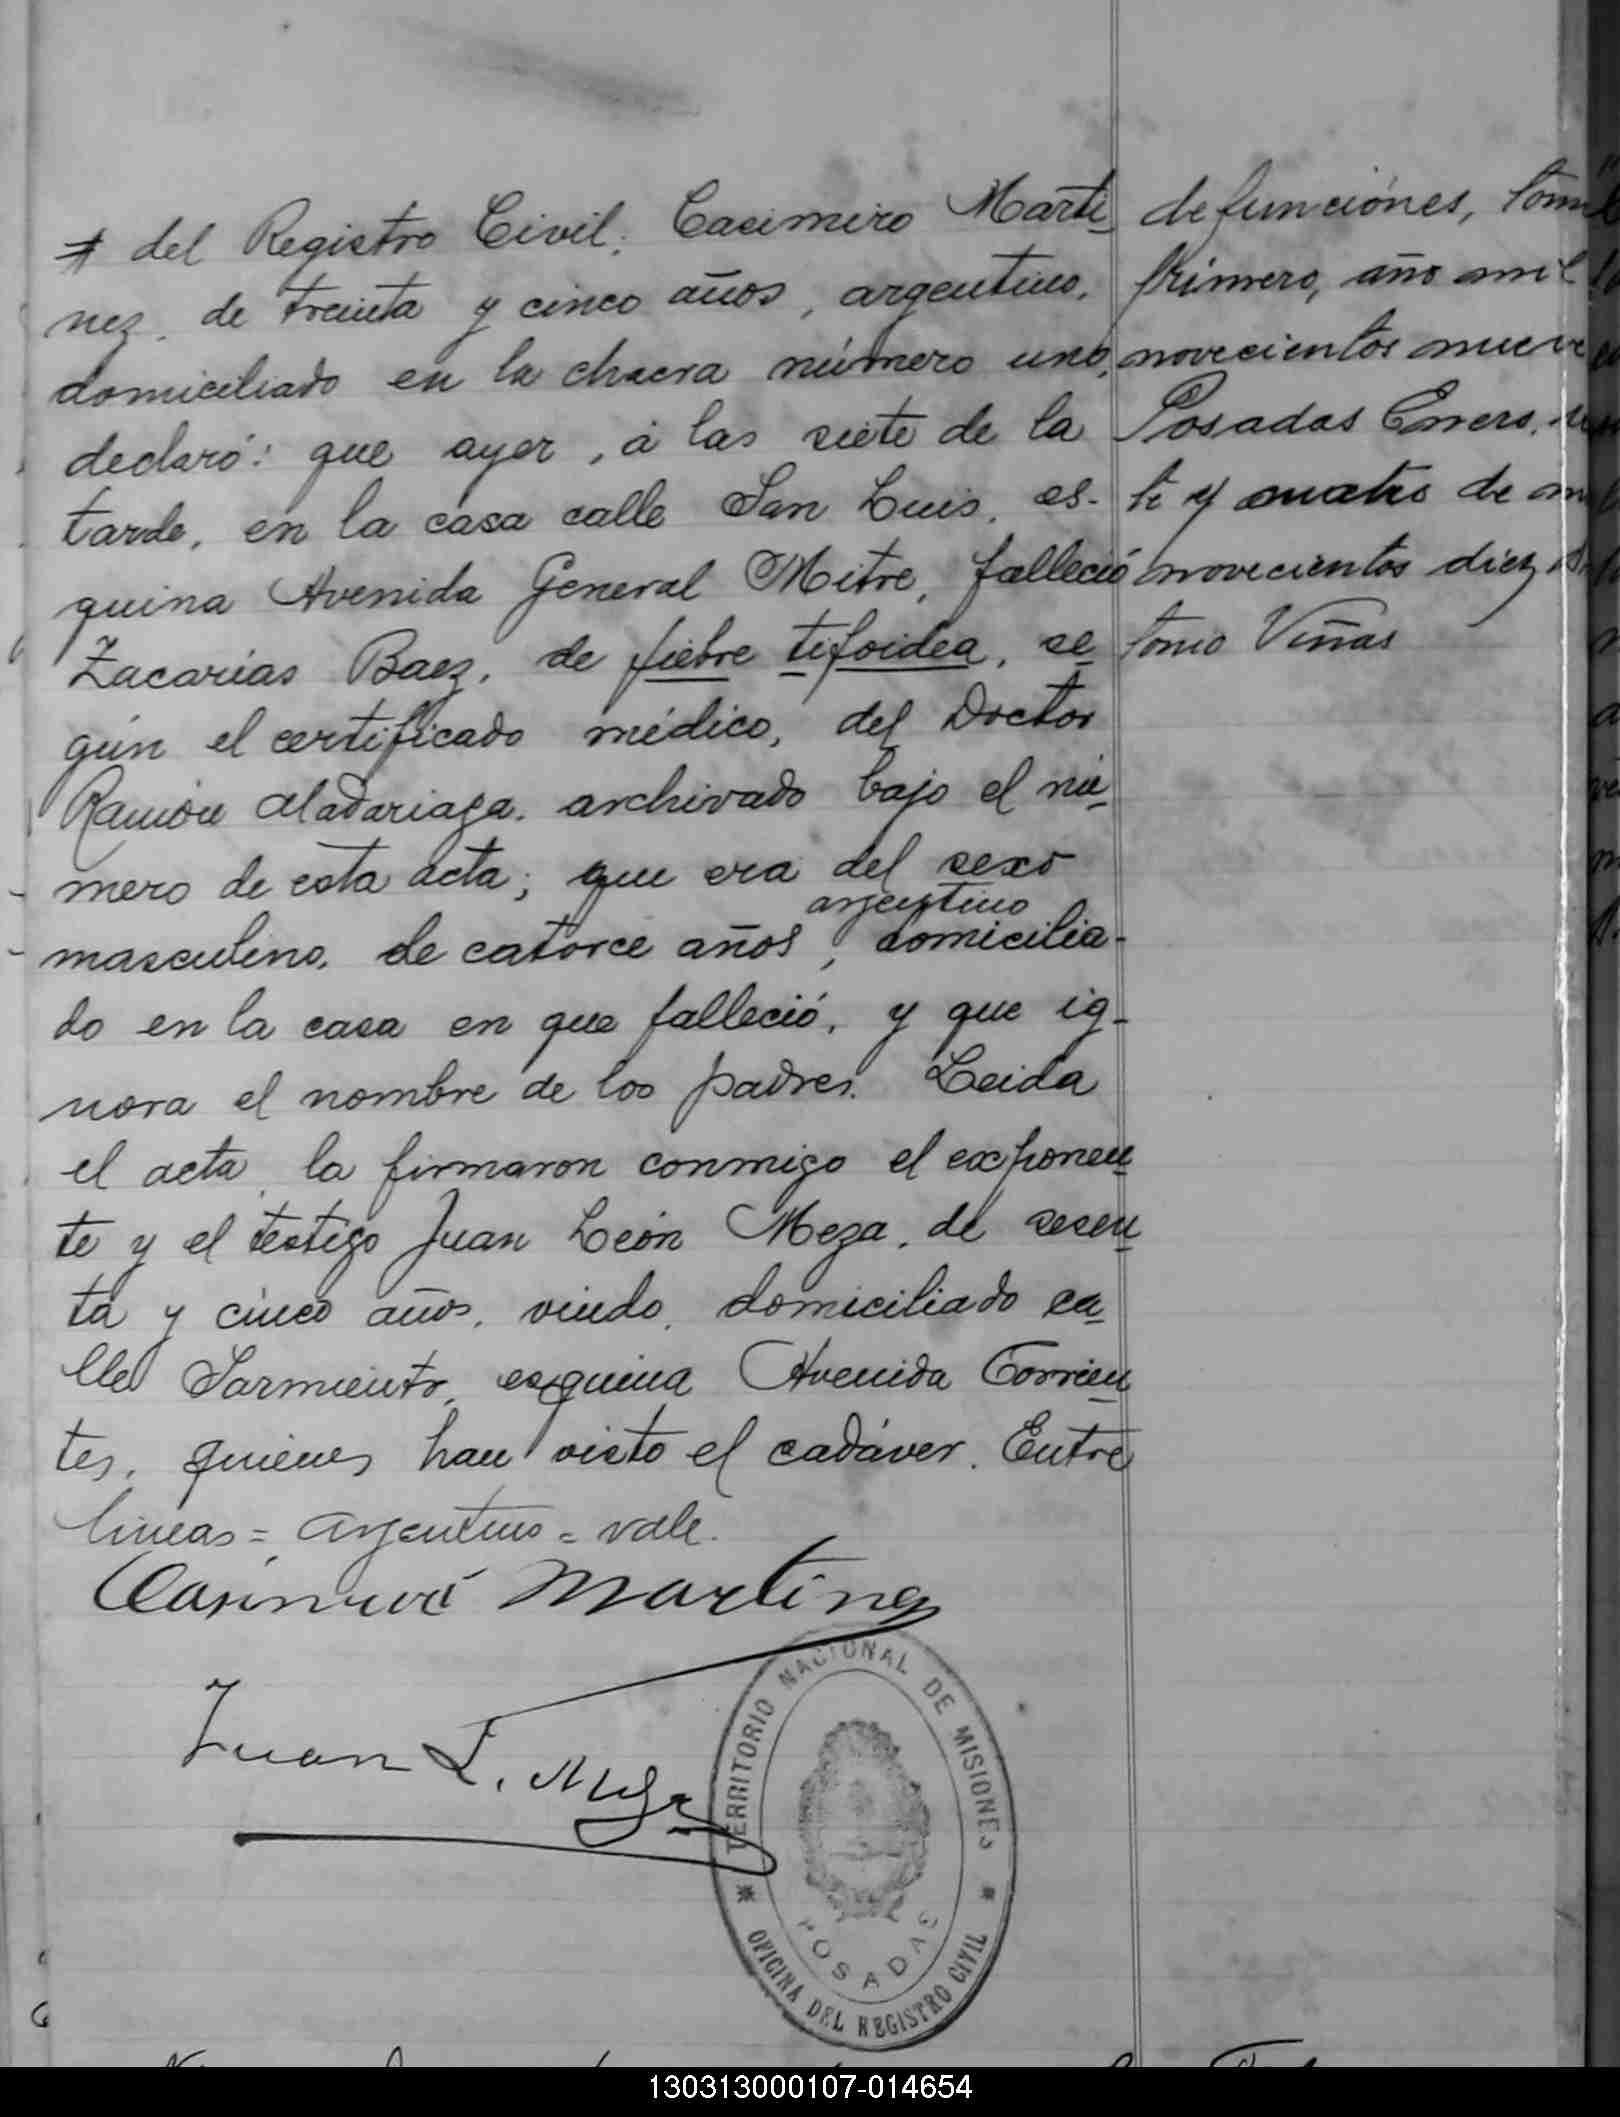 # del Registro Civil; Casimiro Marti
nez, de treinta y cinco años, argentino,
domiciliado en la chacra número uno,
declaró: que ayer, á las siete de la
tarde, en la casa calle San Luis, es-
quina Avenida General Mitre, falleció
Zacarías Baez, de fiebre tifoidea, se
gún el certificado médico, del Doctor
Ramón Madariaga, archivado bajo el nú
mero de esta acta; que era del sexo
argentino
masculino, de catorce años, domicilia-
do en la casa en que falleció, y que ig-
nora el nombre de los padres. Leida
el acta, la firmaron conmigo el exponen
te y el testigo Juan León Meza, de sesen
ta y cinco años, viudo, domiciliado ca
lle Sarmiento, esquina Avenida Corrien
tes, quienes han visto el cadáver. Entre
lineas = argentino = vale.
Casimiro Martinez
Juan L. Meza
defunciónes, tom
primero, año mil
novecientos nueve
Posadas Enero,
te y cuatro de
novecientos diez
tonio Viñas
TERRITORIO NACIONAL DE MISIONES
POSADAS
* OFICINA DEL REGISTRO CIVIL *
130313000107-014654